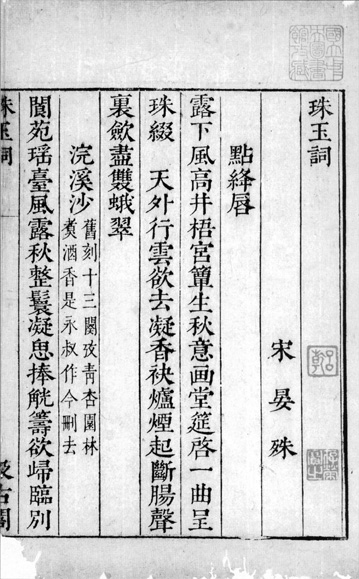 珠玉詞
宋 晏 殊
點絳唇
露下風高井梧宮簟生秋意画堂筵啓一曲呈
珠綴 天外行雲欲去凝香袂爐煙起斷腸聲
裏歛盡雙蛾翠
浣溪沙
舊刻十三闋攷青杏園林
煑酒香是永叔作今刪去
閬苑瑶臺風露秋整鬟凝思捧觥籌欲歸臨別
珠玉詞
汲古閣